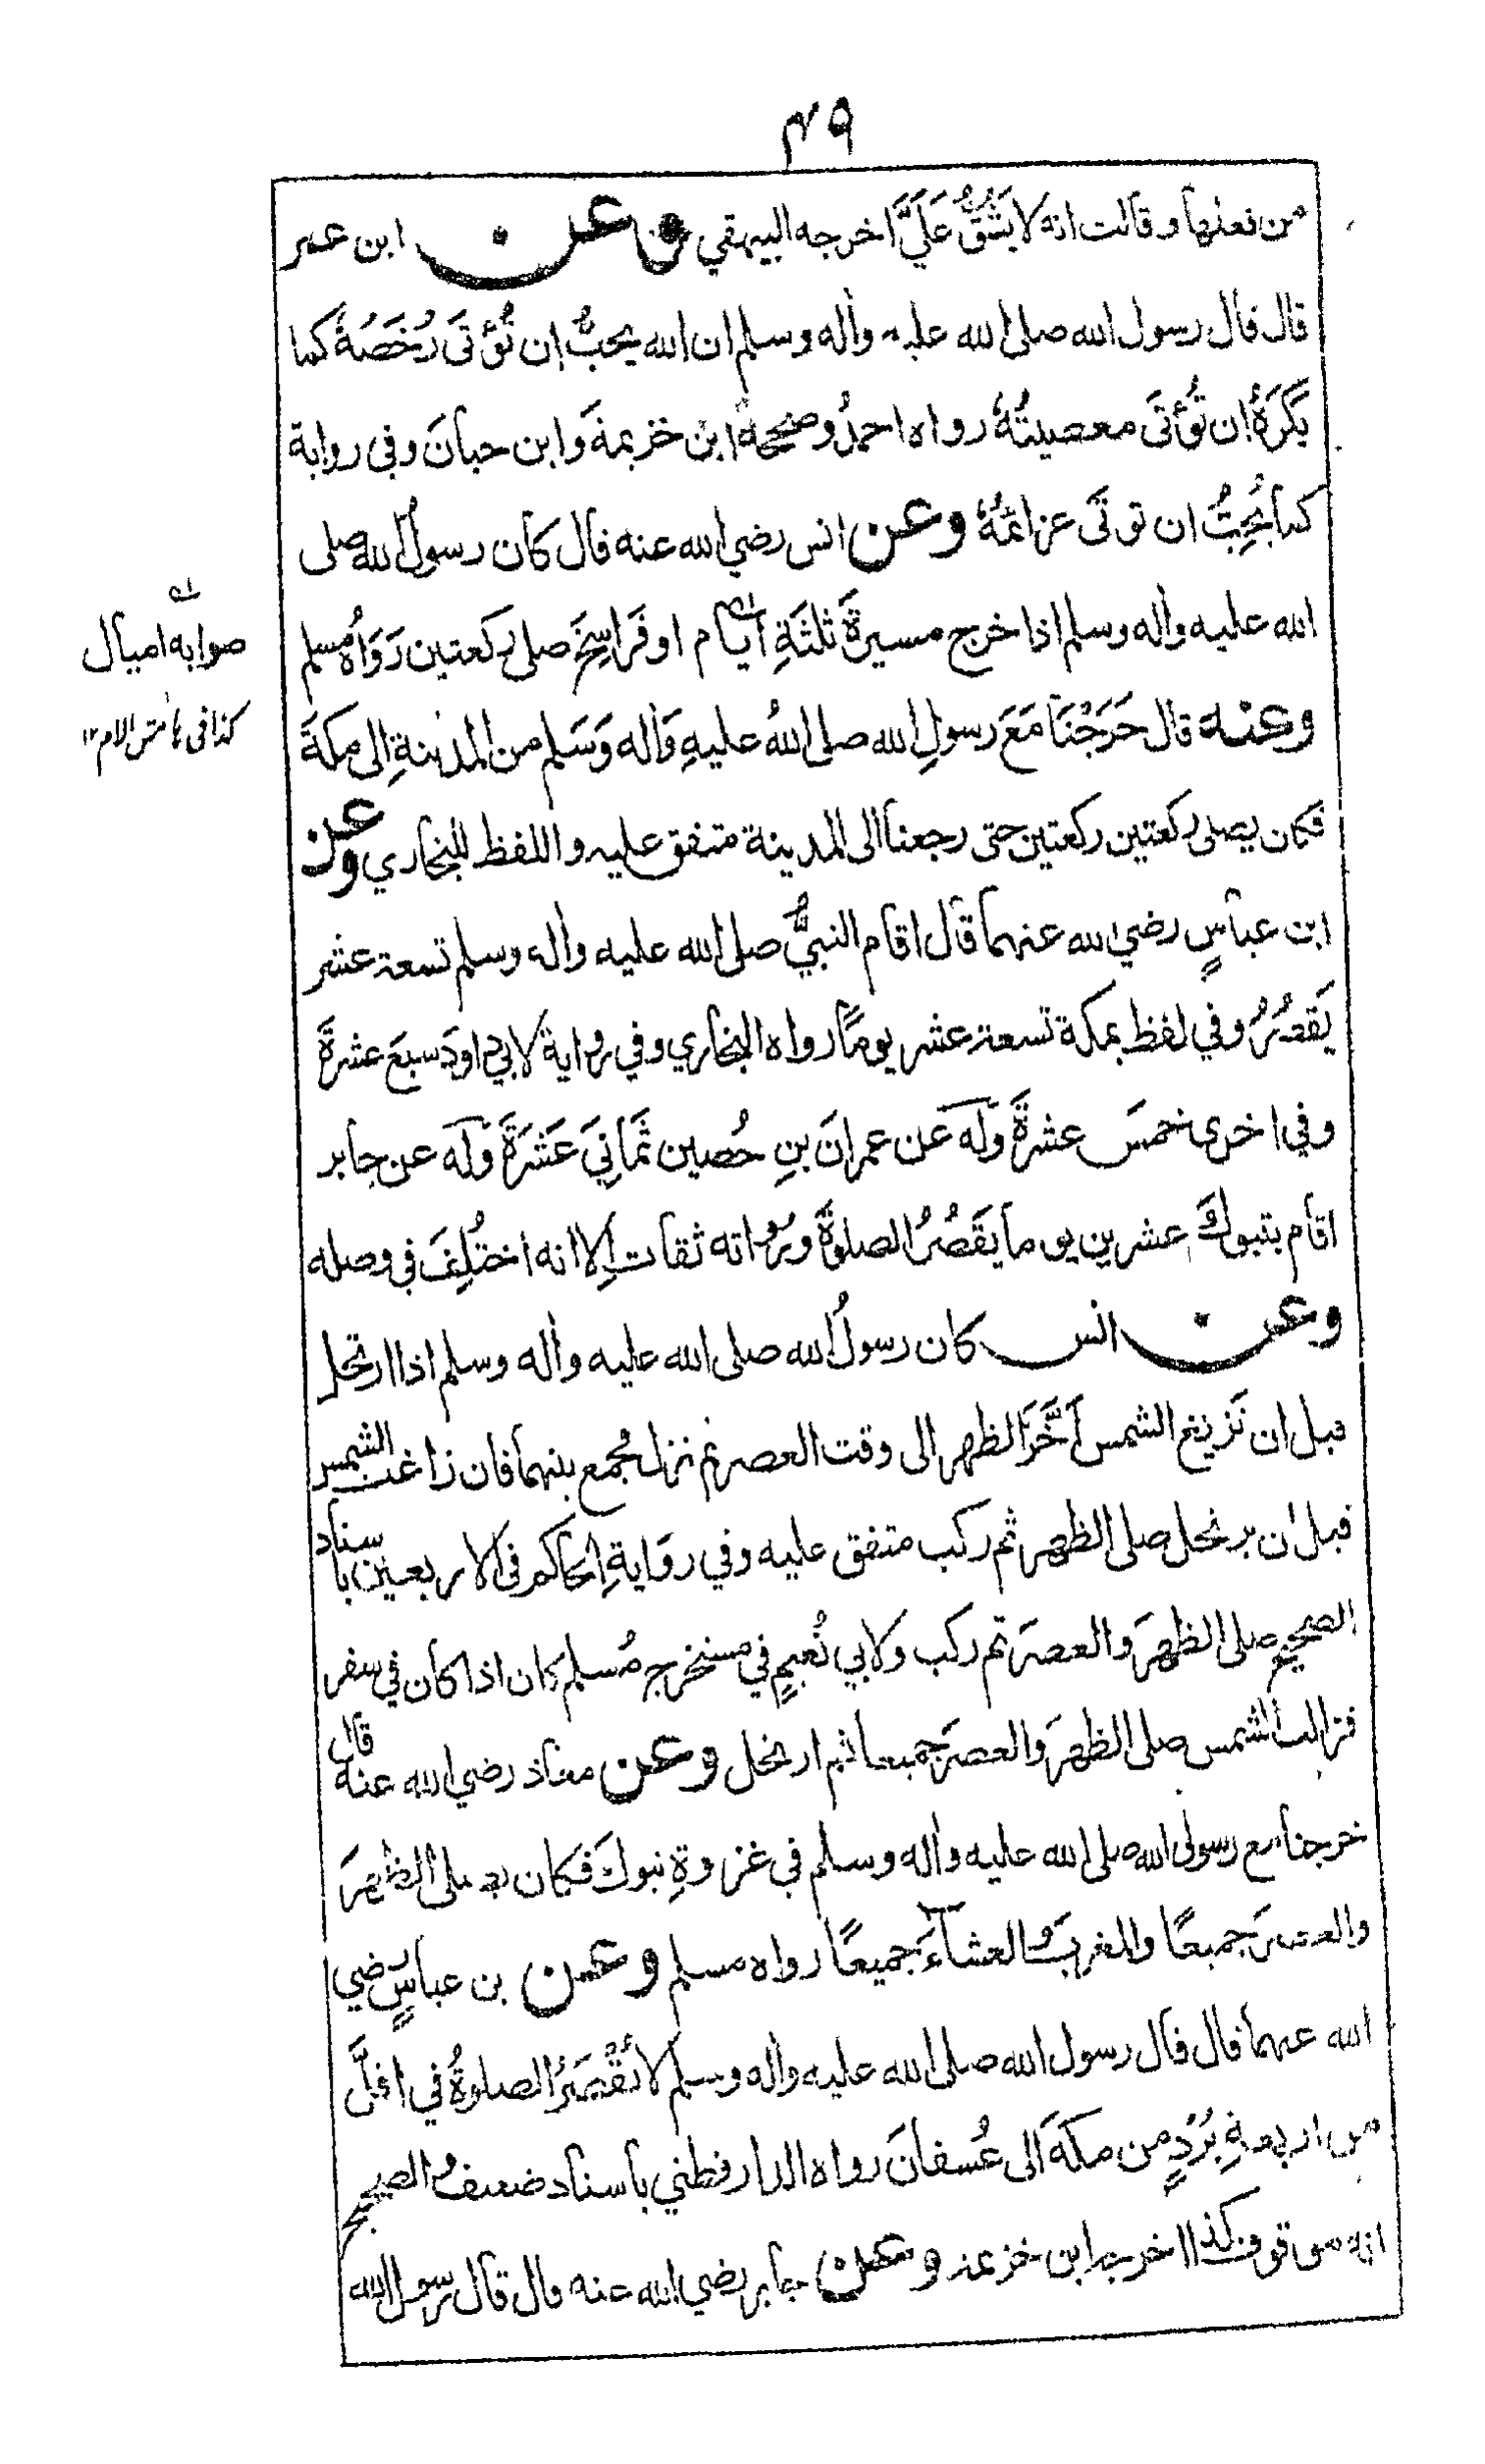 ٤٩
من فعلها وقالت انه لا يَشُقُّ عَلَيَّ اخرجه البيهقي وعن ابن عمر
قال قال رسول الله صلى الله عليه وأله وسلم ان الله يحبُّ ان تُؤتَى رُخَصُهُ كما
يَكرَهُ ان تُؤتَى معصيتُهُ رواه احمدُ وصححهُ ابن خزيمةَ وابن حبانَ وفي رواية
كما يُحِبُّ ان توتَى عزائمُهُ وعن انس رضي الله عنه قال كان رسولُ الله صلى
الله عليه وأله وسلم اذا خرج مسيرةَ ثلثةِ ايام او فَرَاسِخَ صلى ركعتين رَوَاهُ مسلم
وعنه قال خَرَجْنَا مَعَ رسولِ الله صلى اللهُ عليهِ وَأله وَسَلم من المدينةِ الى مكةَ
فكان يصلي ركعتين ركعتين حتى رجعنا الى المدينة متفق عليه واللفظ للبخاري وعن
ابن عباسٍ رضي الله عنهما قال اقام النبيُّ صلى الله عليه وأله وسلم تسعة عشر
يَقصُرُ وفي لفظ بمكة تسعة عشر يومًا رواه البخاري وفي رواية لابي داودَ سبعَ عشرةَ
وفي اخرى خمسَ عشرةَ وله عن عمرانَ بنِ حُصين ثَمَانِيَ عَشَرَةَ وله عن جابر
اقام بتبوكَ عشرين يوما يَقصُرُ الصلوةَ ورُواته ثقات الا انه اختُلِفَ في وصله
وعن انس كان رسولُ الله صلى الله عليه وأله وسلم اذا ارتحل
قبل ان تَزيغ الشمس اَخَّرَ الظهر الى وقت العصر ثم نزل فجمع بينهما فان زاغت الشمس
قبل ان يرتحل صلى الظهر ثم ركب متفق عليه وفي روايةِ الحاكم في الاربعين باسناد
الصحيح صلى الظهرَ والعصرَ ثم ركب ولابي نُعيمٍ في مستخرج مُسلم كان اذا كان في سفر
فزالت الشمس صلى الظهرَ والعصرَ جميعا ثم ارتحل وعن معاذ رضي الله عنه قال
خرجنا مع رسول الله صلى الله عليه وأله وسلم في غزوةِ تبوكَ فكان يصلي الظهرَ
والعصرَ جميعًا والمغربَ والعشآءَ جميعًا رواه مسلم وعن بن عباسٍ رضي
الله عنهما قال قال رسول الله صلى الله عليه وأله وسلم لا تُقْصَرُ الصلوةُ في اقلَّ
من اربعةِ بُرُدٍ من مكةَ الى عُسفانَ رواه الدارقطني باسناد ضعيف والصحيح
انه موقوف كذا اخرجه ابن خزيمة وعن جابر رضي الله عنه قال قال رسول الله
صوابه اميال
كذا في هامش الام ١٢